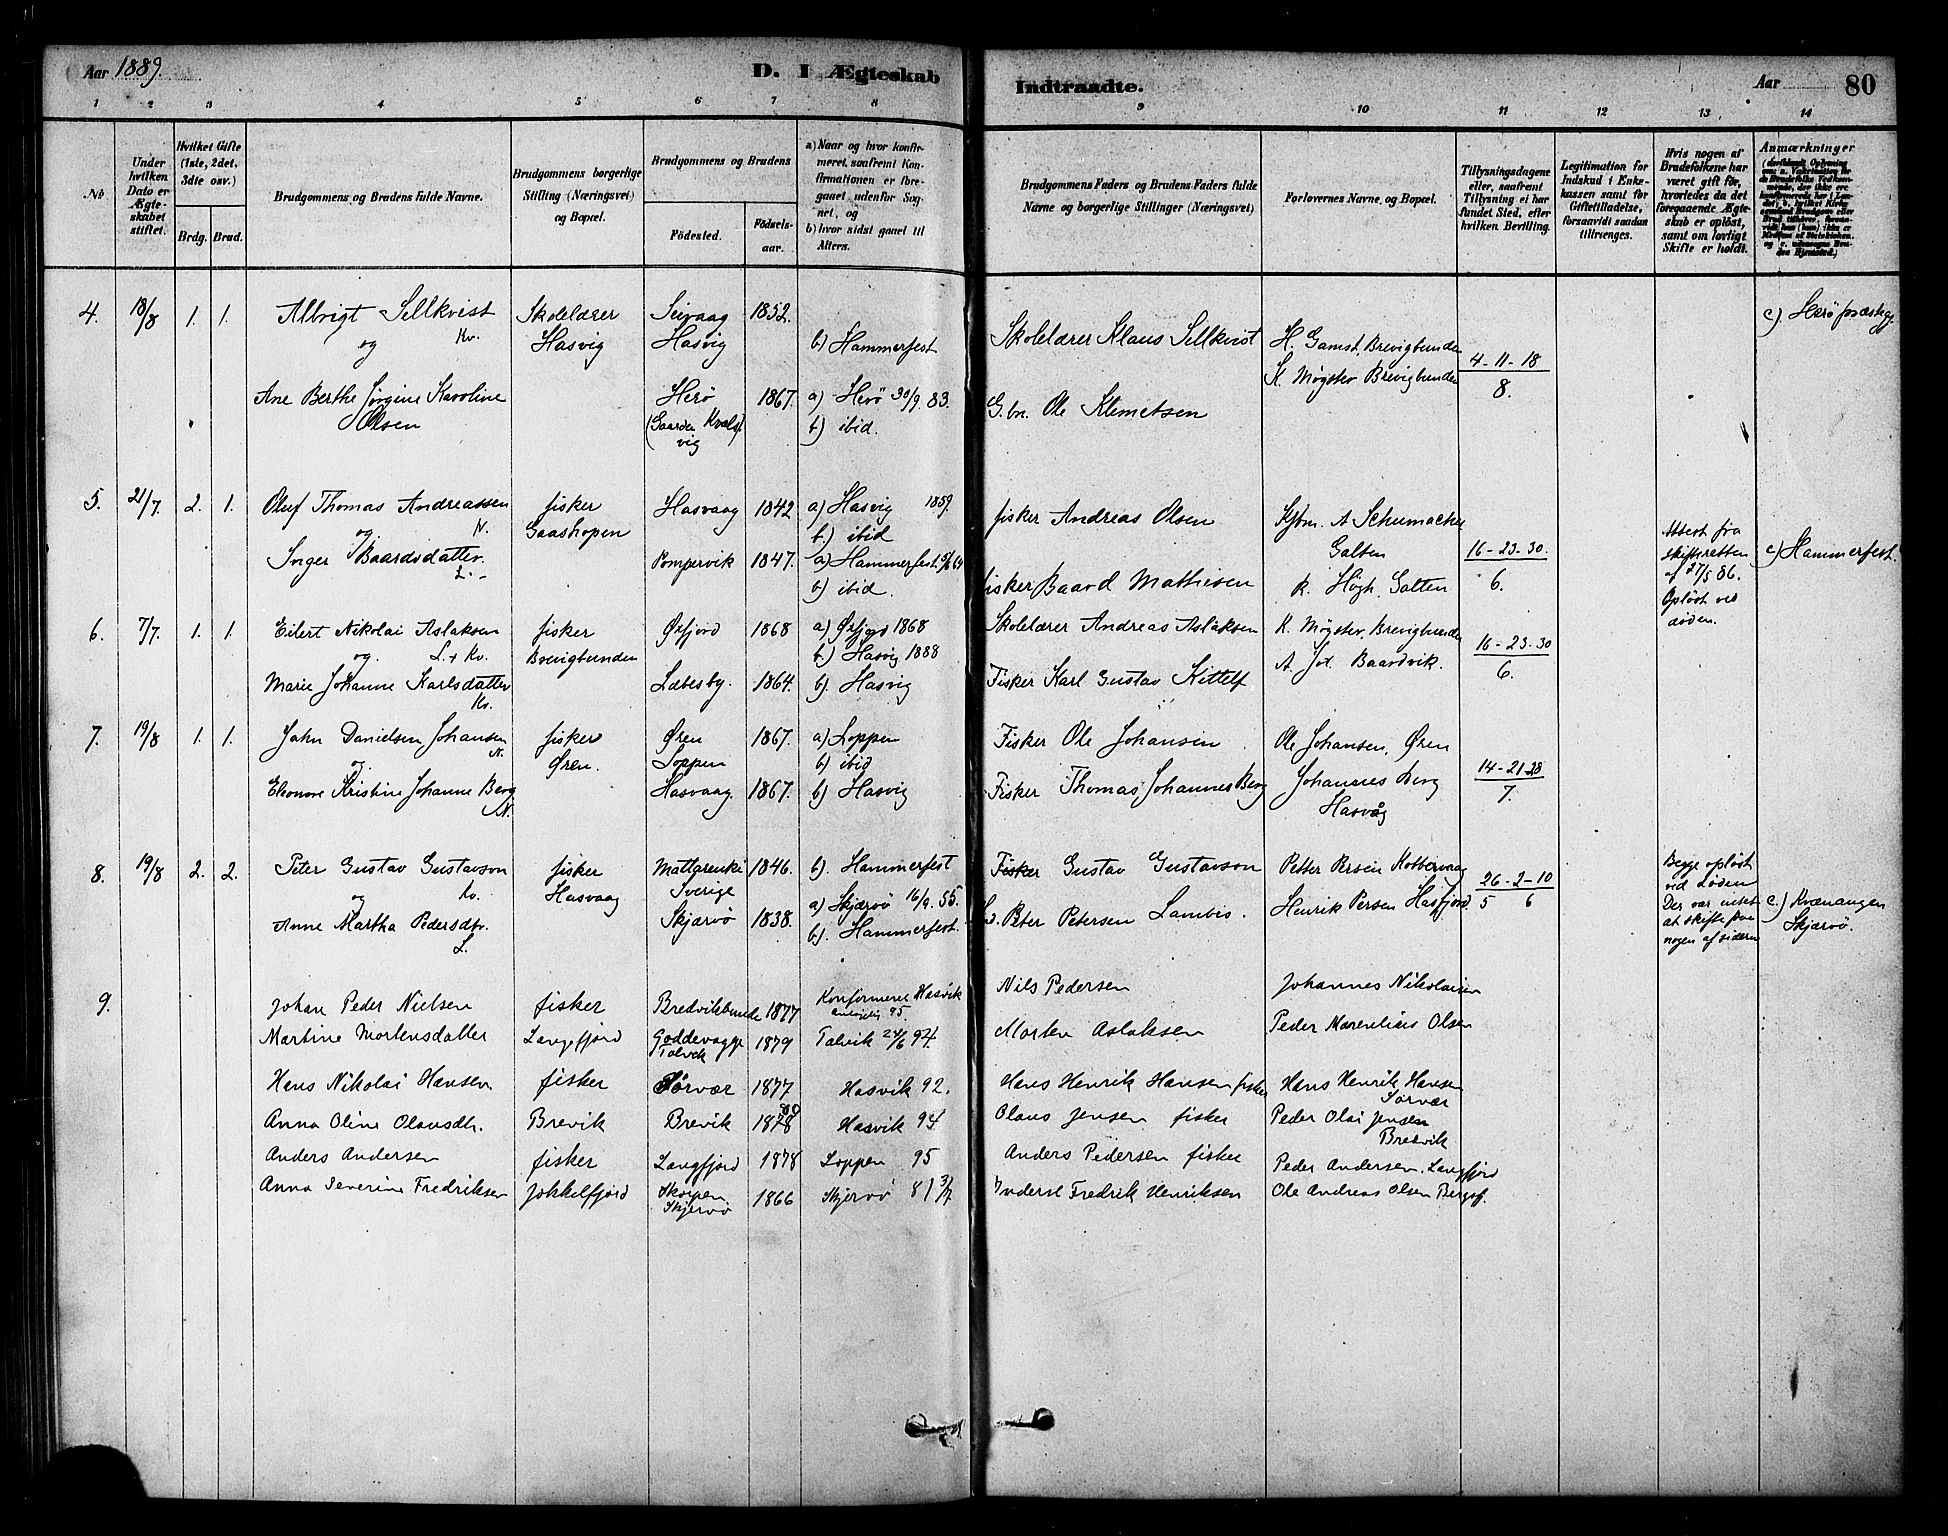 Aar 1889.
D. I Ægteskab Indtraadte.
Aar 80
1 2 3 4 5 6 7 8 9 10 11 12 13 14
No
Under hvilken Dato er Ægteskabet stiftet.
Hvilket Gifte (1ste, 2det, 3die osv.)
Brdg. Brud.
Brudgommens og Brudens fulde Navne.
Brudgommens borgerlige Stilling (Næringsvei) og Bopæl.
Brudgommens og Brudens
Fødested. Fødselsaar.
a) Naar og hvor konfirmeret, saafremt Konfirmationen er foregaaet udenfor Sognet, og
b) hvor sidst gaaet til Alters.
Brudgommens Faders og Brudens Faders fulde Navne og borgerlige Stillinger (Næringsvei)
Forlovernes Navne, og Bopæl.
Tillysningsdagene eller, saafremt Tillysning ei har fundet Sted, efter hvilken Bevilling.
Legitimation for Indskud i Enkekassen samt for Giftetilladelse, forsaavidt saadan tiltrænges.
Hvis nogen af Brudefolkene har været gift før, hvorledes da det foregaaende Ægteskab er opløst, samt om lovligt Skifte er holdt.
Anmærkninger
4. 18/8 1. 1. Albrigt Sellkvist Skolelærer Seivaag 1852. Skolelærer Klaus Sellkvist H. Gamst, Brevigbunden 4-11-18 c) Herø præstegj.
og Kv. Hasvig Hasvig b) Hammerfest K. Møgster Brevigbunden 8.
Ane Berthe Jørgine Karoline Herø 1867. a) Herö 30/9 83. G.br. Ole Klemetsen
Olsen (Gaarden Kvalsvig b) ibid.
5. 21/7. 2. 1. Oluf Thomas Andreassen fisker Hasvaag 1842 a) Hasvig 1859. fisker Andreas Olsen Kjbm. A Schumacher
og N. Gaashopen b.) ibid Galten 16-23-30. Attest fra skifteretten af 27/5 86. Opløst ved døden. c) Hammerfest.
Inger Baardsdatter. L. Pompervik 1847. a) Hammerfest 5/6 64 fisker Baard Mathisen R. Høgh, Galten 6.
b) ibid.
6. 7/7. 1. 1. Eilert Nikolai Aslaksen fisker Øxfjord 1868 a) Øxfjord 1868 Skolelærer Andreas Aslaksen K. Møgster, Brevigbunden 16-23-30
og L. + Kv. Brevigbunden b.) Hasvig 1888 Baardvik. 6.
Marie Johanne Karlsdatter Kv. Lebesby. 1864. b). Hasvig Fisker Karl Gustav Kittelf
7. 19/8 1. 1. John Danielsen Johansen N. fisker Øren 1867. a) Loppen Fisker Ole Johansen Ole Johansen, Øren
og Øren. Loppen b) ibid 14-21-28
Elenore Kristine Johanne Berg N. Hasvaag. 1867. b) Hasvig Fisker Thomas Johannes Berg Johannes Berg 7.
Hasvåg
8. 19/8 2. 2. Peter Gustav Gustavson fisker Mattarenki 1846. b). Hammerfest Fisker Gustav Gustavson Petter Persen Kobbervaag 26-2-10 Begge opløst ved Døden
og Kv. Hasvaag Sverige a) Skjærvö 16/9. 55. Henrik Persen Hasfjord. 5 6 Der var intet at skifte paa nogen af siderne c.) Kvænangen
Anne Martha Pedersdtr. L. Skjærvö 1838. b). Hammerfest. Peter Petersen Lambis. Skjærvö.
9. Johan Peder Nielsen fisker Bredvikbunde 1877 Konfirmeret Hasvik 95. Nils Pedersen Johannes Nikolaisen
Martine Mortensdatter Langfjord Talvik 1879 Talvik 24/6 94. Morten Aslaksen Peder Marenlius Olsen
Hans Nikolai Hansen fisker Sørvær 1877 Hasvik 92. Hans Henrik Hansen fisker Hans Henrik Hansen Sørvær
Anna Oline Olausdtr. Brevik Brevik 1878 80 Hasvik 94 Olaus Jensen fisker Peder Olai Jensen Bredvik
Anders Andersen fisker Langfjord 1878 Loppen 95 Anders Pedersen fisker Peder Andersen, Langfjord
Anna Severine Fredriksen Jokkelfjord Skorpen Skjervö 1866 Skjervö 81 3/7 Inderst Fredrik Henriksen Ole Andreas Olsen Bergsf.